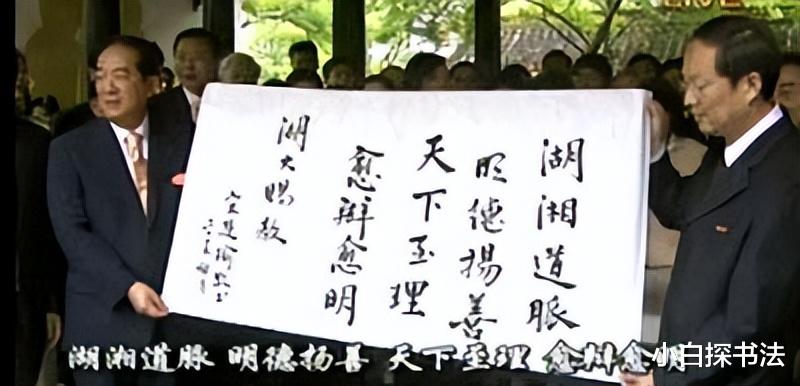 湖湘道脈
明德揚善
天下至理
愈辯愈明
湖大賜教
宋楚瑜
湖湘道脈 明德扬善 天下至理 愈辩愈明
小白探书法